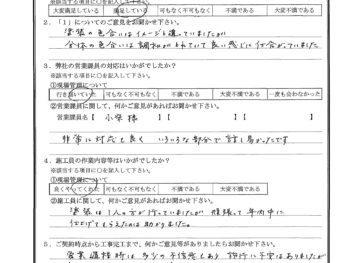 ※該当する項目に○を記入して下さい。
大変満足している 満足している 可もなく不可もなく 不満である 大変不満である
2.「1」についてのご意見をお聞かせ下さい。
塗装の色合いはイメージと違っていましたが
全体の色合いは調和がとれていて良い感じに仕上がっていました
3.弊社の営業課員の対応はいかがでしたか？
※該当する項目に○を記入して下さい。
①現場管理について
行き届いていた 可もなく不可もなく 不満である 大変不満である 一度も会わなかった
②営業課員に関して、何かご意見があればお聞かせ下さい。
営業課員名【 小 様 】【 】【 】
非常に対応も良く いろいろな部分で話し易かったです
4.施工員の作業内容等はいかがでしたか？
※該当する項目に○記入して下さい。
①現場管理について
良くやってくれた 可もなく不可もなく 不満である 大変不満である
②施工員に関して、何かご意見があればお聞かせ下さい。
塗装は1人の方が行っていましたが 頑張って年内中に
仕上げてもらえたのは助かりました。
5.ご契約時点から工事完工まで、何かご意見等がありましたらお聞かせ下さい。
営業 時は多少の不信感もあり に不安はありましたが